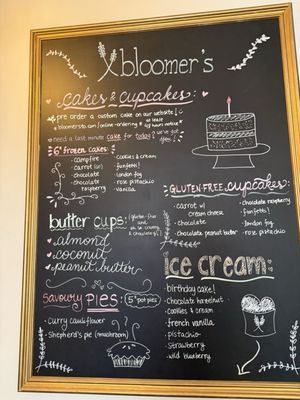 bloomer's
cakes & cupcakes
pre order a custom cake on our website
bloomersto.com/online-ordering * at least 48 hours notice
need a last minute cake for today? we've got you!
6" frozen cakes:
• campfire
• carrot (GF)
• chocolate
• chocolate raspberry
• cookies & cream
• funfetti!
• london fog
• rose pistachio
• vanilla
butter cups:
almond
coconut
peanut butter
savoury pies: 5" pot pies
• curry cauliflower
• shepherd's pie (mushroom)
gluten free cupcakes:
• carrot w/ cream cheese
• chocolate
• chocolate peanut butter
• chocolate raspberry
• funfetti!
• london fog
• rose pistachio
ice cream:
birthday cake!
chocolate hazelnut
cookies & cream
french vanilla
pistachio
strawberry
wild blueberry